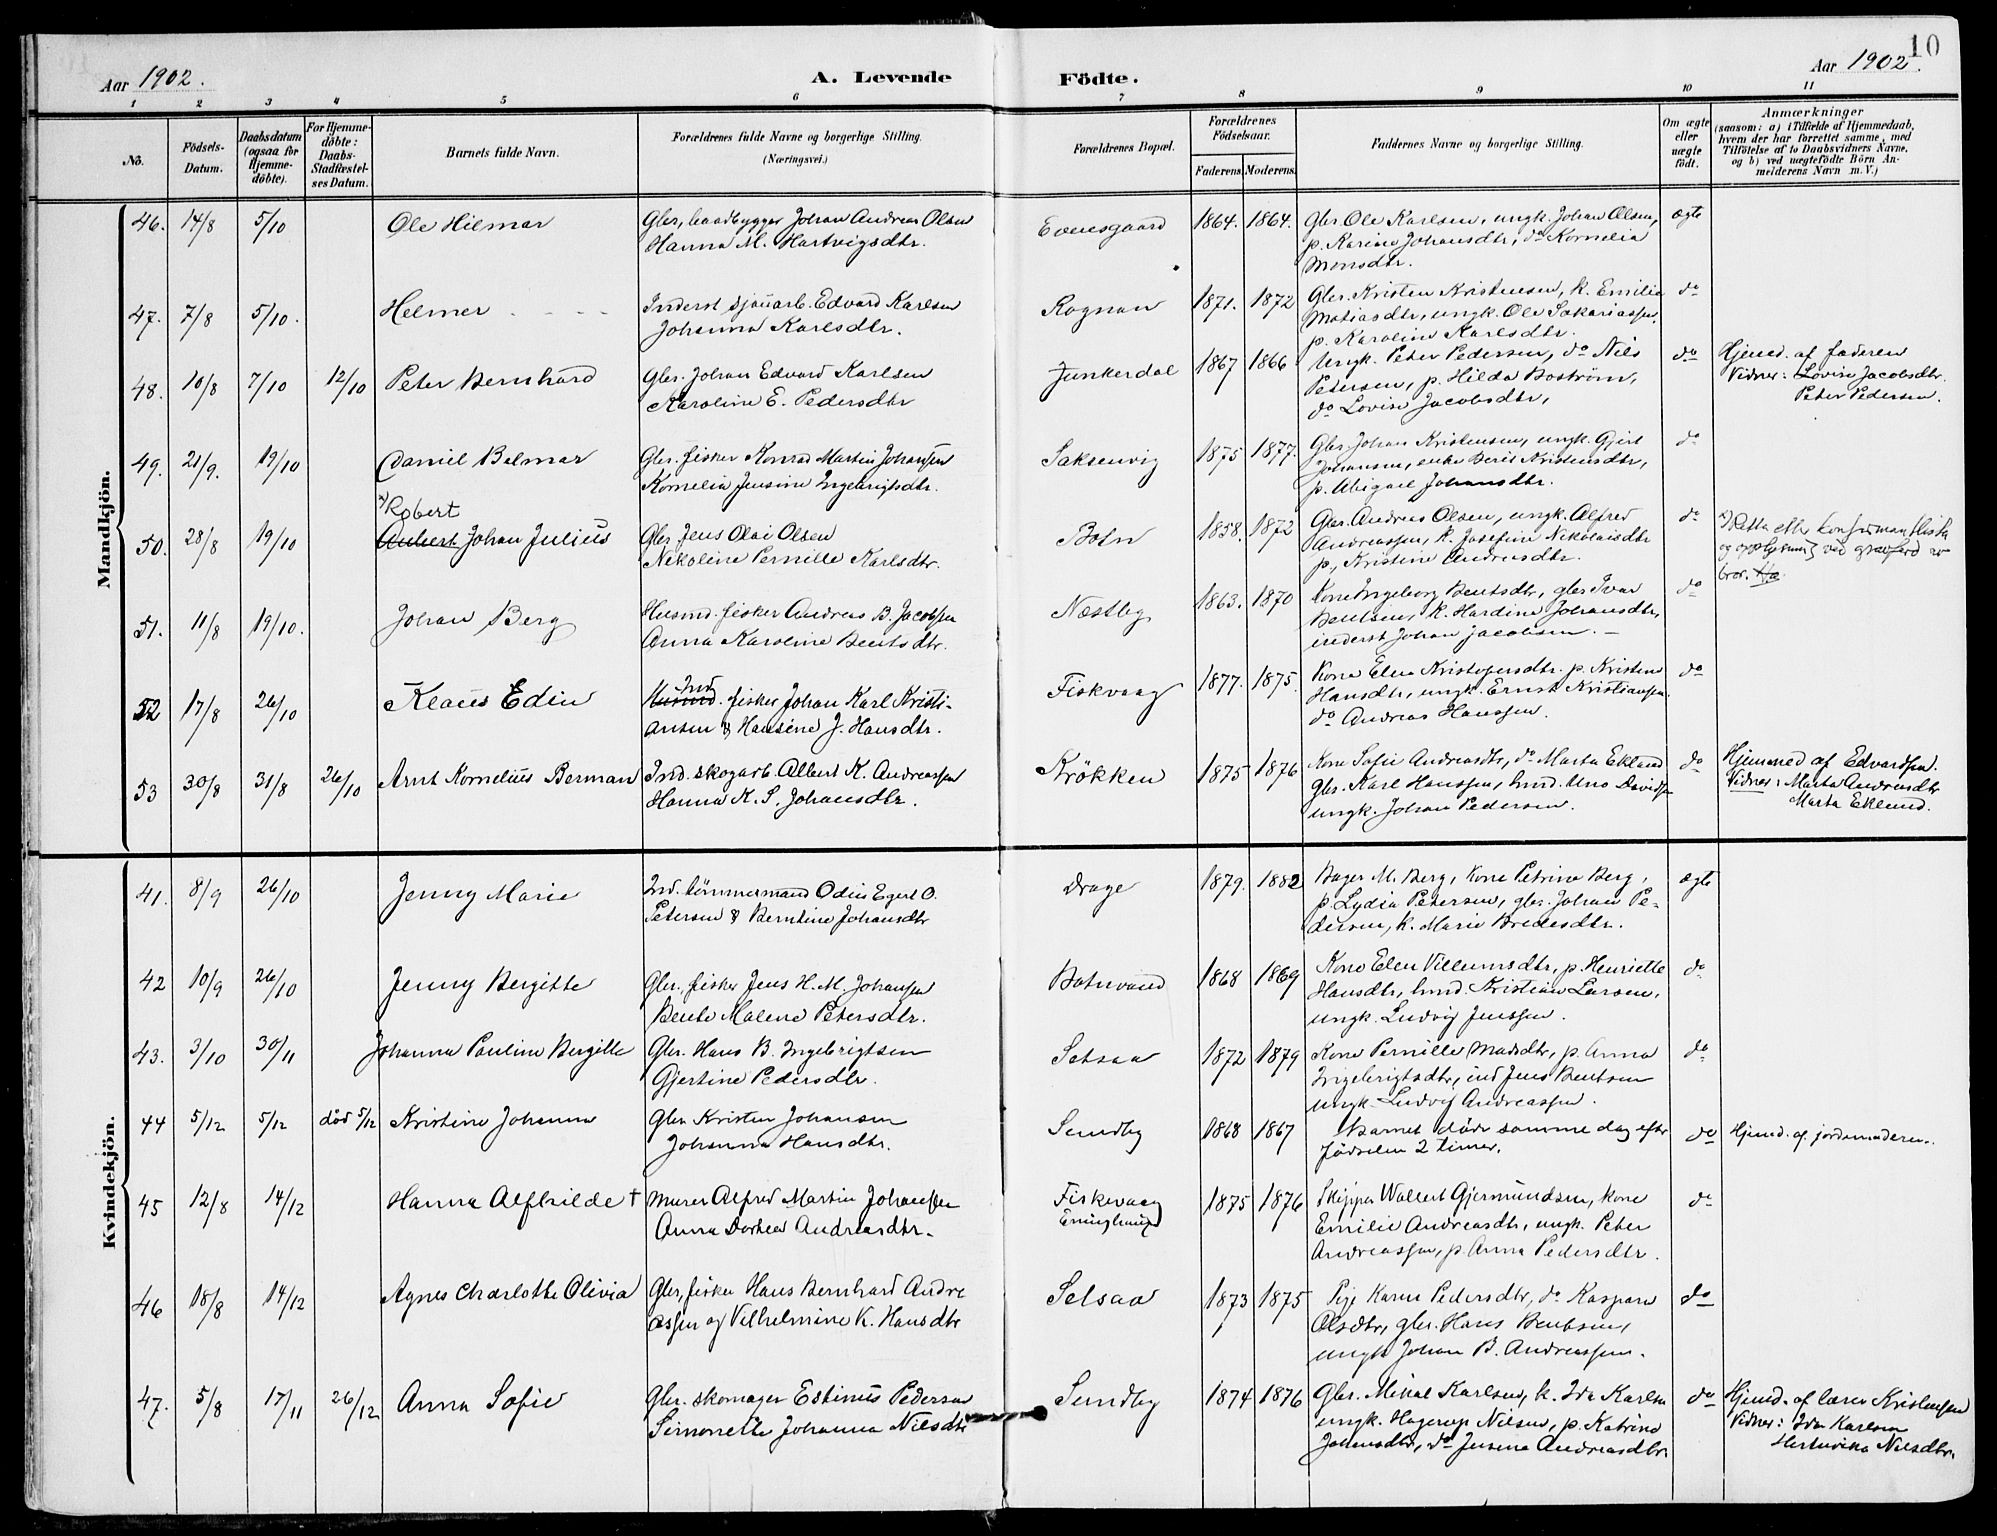 10
Aar 1902.
A. Levende
Födte.
Aar 1902.
1 2 3 4 5 6 7 8 9 10 11
No.
Födsels-Datum.
Daabsdatum (ogsaa for Hjemme-döbte).
For Hjemme-döbte: Daabs-Stadfæstel-ses Datum.
Barnets fulde Navn.
Forældrenes fulde Navne og borgerlige Stilling.
(Næringsvei.)
Forældrenes Bopæl.
Forældrenes Födselsaar.
Faderens. Moderens.
Faddernes Navne og borgerlige Stilling.
Om ægte eller uægte födt.
Anmærkninger
(saasom: a) i Tilfælde af Hjemmedaab,
hvem der har forrettet samme, med
Tilföielse af to Daabsvidners Navne,
og b) ved uægtefödte Börn An-
melderens Navn m. V.)
Mandkjön.
46. 14/8 5/10 Ole Hilmar Gbr, baadbygger Johan Andreas Olsen Evensgaard 1864. 1864. Gbr. Ole Karlsen, ungk. Johan Olsen, ægte
Hanna M. Hartvigsdtr. p. Karine Johansdtr, do Kornelia
Monsdtr.
47. 7/8 5/10. Helmer Inderst sjauarb. Edvard Karlsen Rognan 1871. 1872 Gbr. Kristen Kristensen, k. Emilia do
Johanna Karlsdtr. Matiasdtr, ungk. Ole Sakariassen,
p. Karoline Karlsdtr.
48. 10/8 7/10 12/10 Peter Bernhard Gbr. Johan Edvard Karlsen Junkerdal 1867 1866 Ungk. Peter Pedersen, do Nils do Hjemd. af faderen
Karoline E. Pedersdtr Petersen, p. Hilda Boström, Vidner: Lovise Jacobsdtr.
do Lovise Jacobsdtr, Peter Pedersen.
49. 21/9. 19/10 Daniel Belmar Gbr. fisker Konrad Martin Johansen Saksenvig 1875 1877. Gbr Johan Kristensen, ungk. Gjert do
Kornelia Jensine Ingebrigtsdtr. Johansen, enke Berit Kristensdtr,
p. Abigael Johansdtr.
x) Robert
50. 28/8 19/10 Aubert Johan Julius Gbr Jens Olai Olsen Botn 1858. 1872 Gbr. Andreas Olsen, ungk. Alfred do x) Retta ette
Nikoline Pernille Karlsdtr. Andreassen, k. Josefine Nikolaisdtr og ved gravferd av
p, Kristine Andreasdtr. bror.
51. 11/8 19/10. Johan Berg Husmd. fisker Andreas B. Jacobsen Næstby 1863. 1870 Kone Ingeborg Bentsdtr, gbr Ivar do
Anna Karoline Bentsdtr. Bentsen, k. Hardine Johansdtr,
inderst Johan Jacobsen. —
52 17/8 26/10 Klaus Edin Husmd. Ind fisker Johan Karl Kristi- Fiskvaag 1877. 1875. Kone Elen Kristofersdtr. p. Kristine do
ansen & Hansine J. Hansdtr. Hansdtr, ungk. Ernst Kristiansen
do Andreas Hanssen.
53 30/8 31/8 26/10 Arnt Kornelius Berman Ind. skogarb. Albert K. Andreassen Krökken 1875 1876 Kone Sofie Andreasdtr, do Marta Eklund do Hjemmed af Edvardsen.
Hanna K. S. Johansdtr. gbr. Karl Hanssen, hmd. Uno Davidsen Vidner: Marta Andreasdtr
ungk. Johan Pedersen. Marta Eklund.
Kvindekjön.
41. 8/9 26/10 Jenny Marie Ind. tömmermand Odin Egert O. Drage 1879. 1882 Bager M. Berg, kone Petrine Berg, ægte
Petersen & Berntine Johansdtr p. Lydia Petersen, gbr. Johan Pe-
dersen, k. Marie Bredesdtr.
42 10/9 26/10 Jenny Bergitte Gbr. fisker Jens H. M. Johansen Botnvand 1868 1869 Kone Elen Villumsdtr, p. Henriette do
Bente Malene Petersdtr. Hansdtr, hmd. Kristian Larsen,
ungk. Ludvig Jenssen.
43. 3/10 30/11 Johanna Pauline Bergitte Gbr. Hans B. Ingebrigtsen Setsaa 1872 1879 Kone Pernille Madsdtr, p. Anna do
Gjertine Pedersdtr. Ingebrigtsdtr, ind Jens Bentsen
ungk. Ludvig Andreassen.
44 5/12 5/12 död 5/12 Kristine Johanna Gbr Kristen Johansen Sundby 1868 1867 Barnet döde samme dag efter do Hjemd. af jordemoderen.
Johanna Hansdtr. födselen 2 timer.
45 12/8 14/12 Hanna Alfhilde † Murer Alfred Martin Johansen Fiskvaag 1875 1876 Skipper Wallert Gjermundsen, kone do
Anna Dorthea Andreasdtr. Emilie Andreasdtr, ungk. Peter
Andreassen, p. Anna Pedersdtr.
46 18/8 14/12 Agnes Charlotte Olivia Gbr, fisker Hans Bernhard Andre Setsaa 1873 1875 Pige Karen Pedersdtr, do Kaspara do
assen og Vilhelmine K. Hansdtr Olsdtr, gbr. Hans Bentsen,
ungk Johan B. Andreassen.
47. 5/8 17/11 26/12 Anna Sofie Gbr. skomager Estinus Pedersen Sundby 1874 1876 Gbr. Mikal Karlsen, k. Ida Karlsen do Hjemd. af lærer Kristensen
Simonette Johanna Nilsdtr ungk. Hagerup Nilsen, p. Katrine Vidner: Ida Karlsen
Johansdtr, do Jusina Andreasdtr. Nilsdtr.